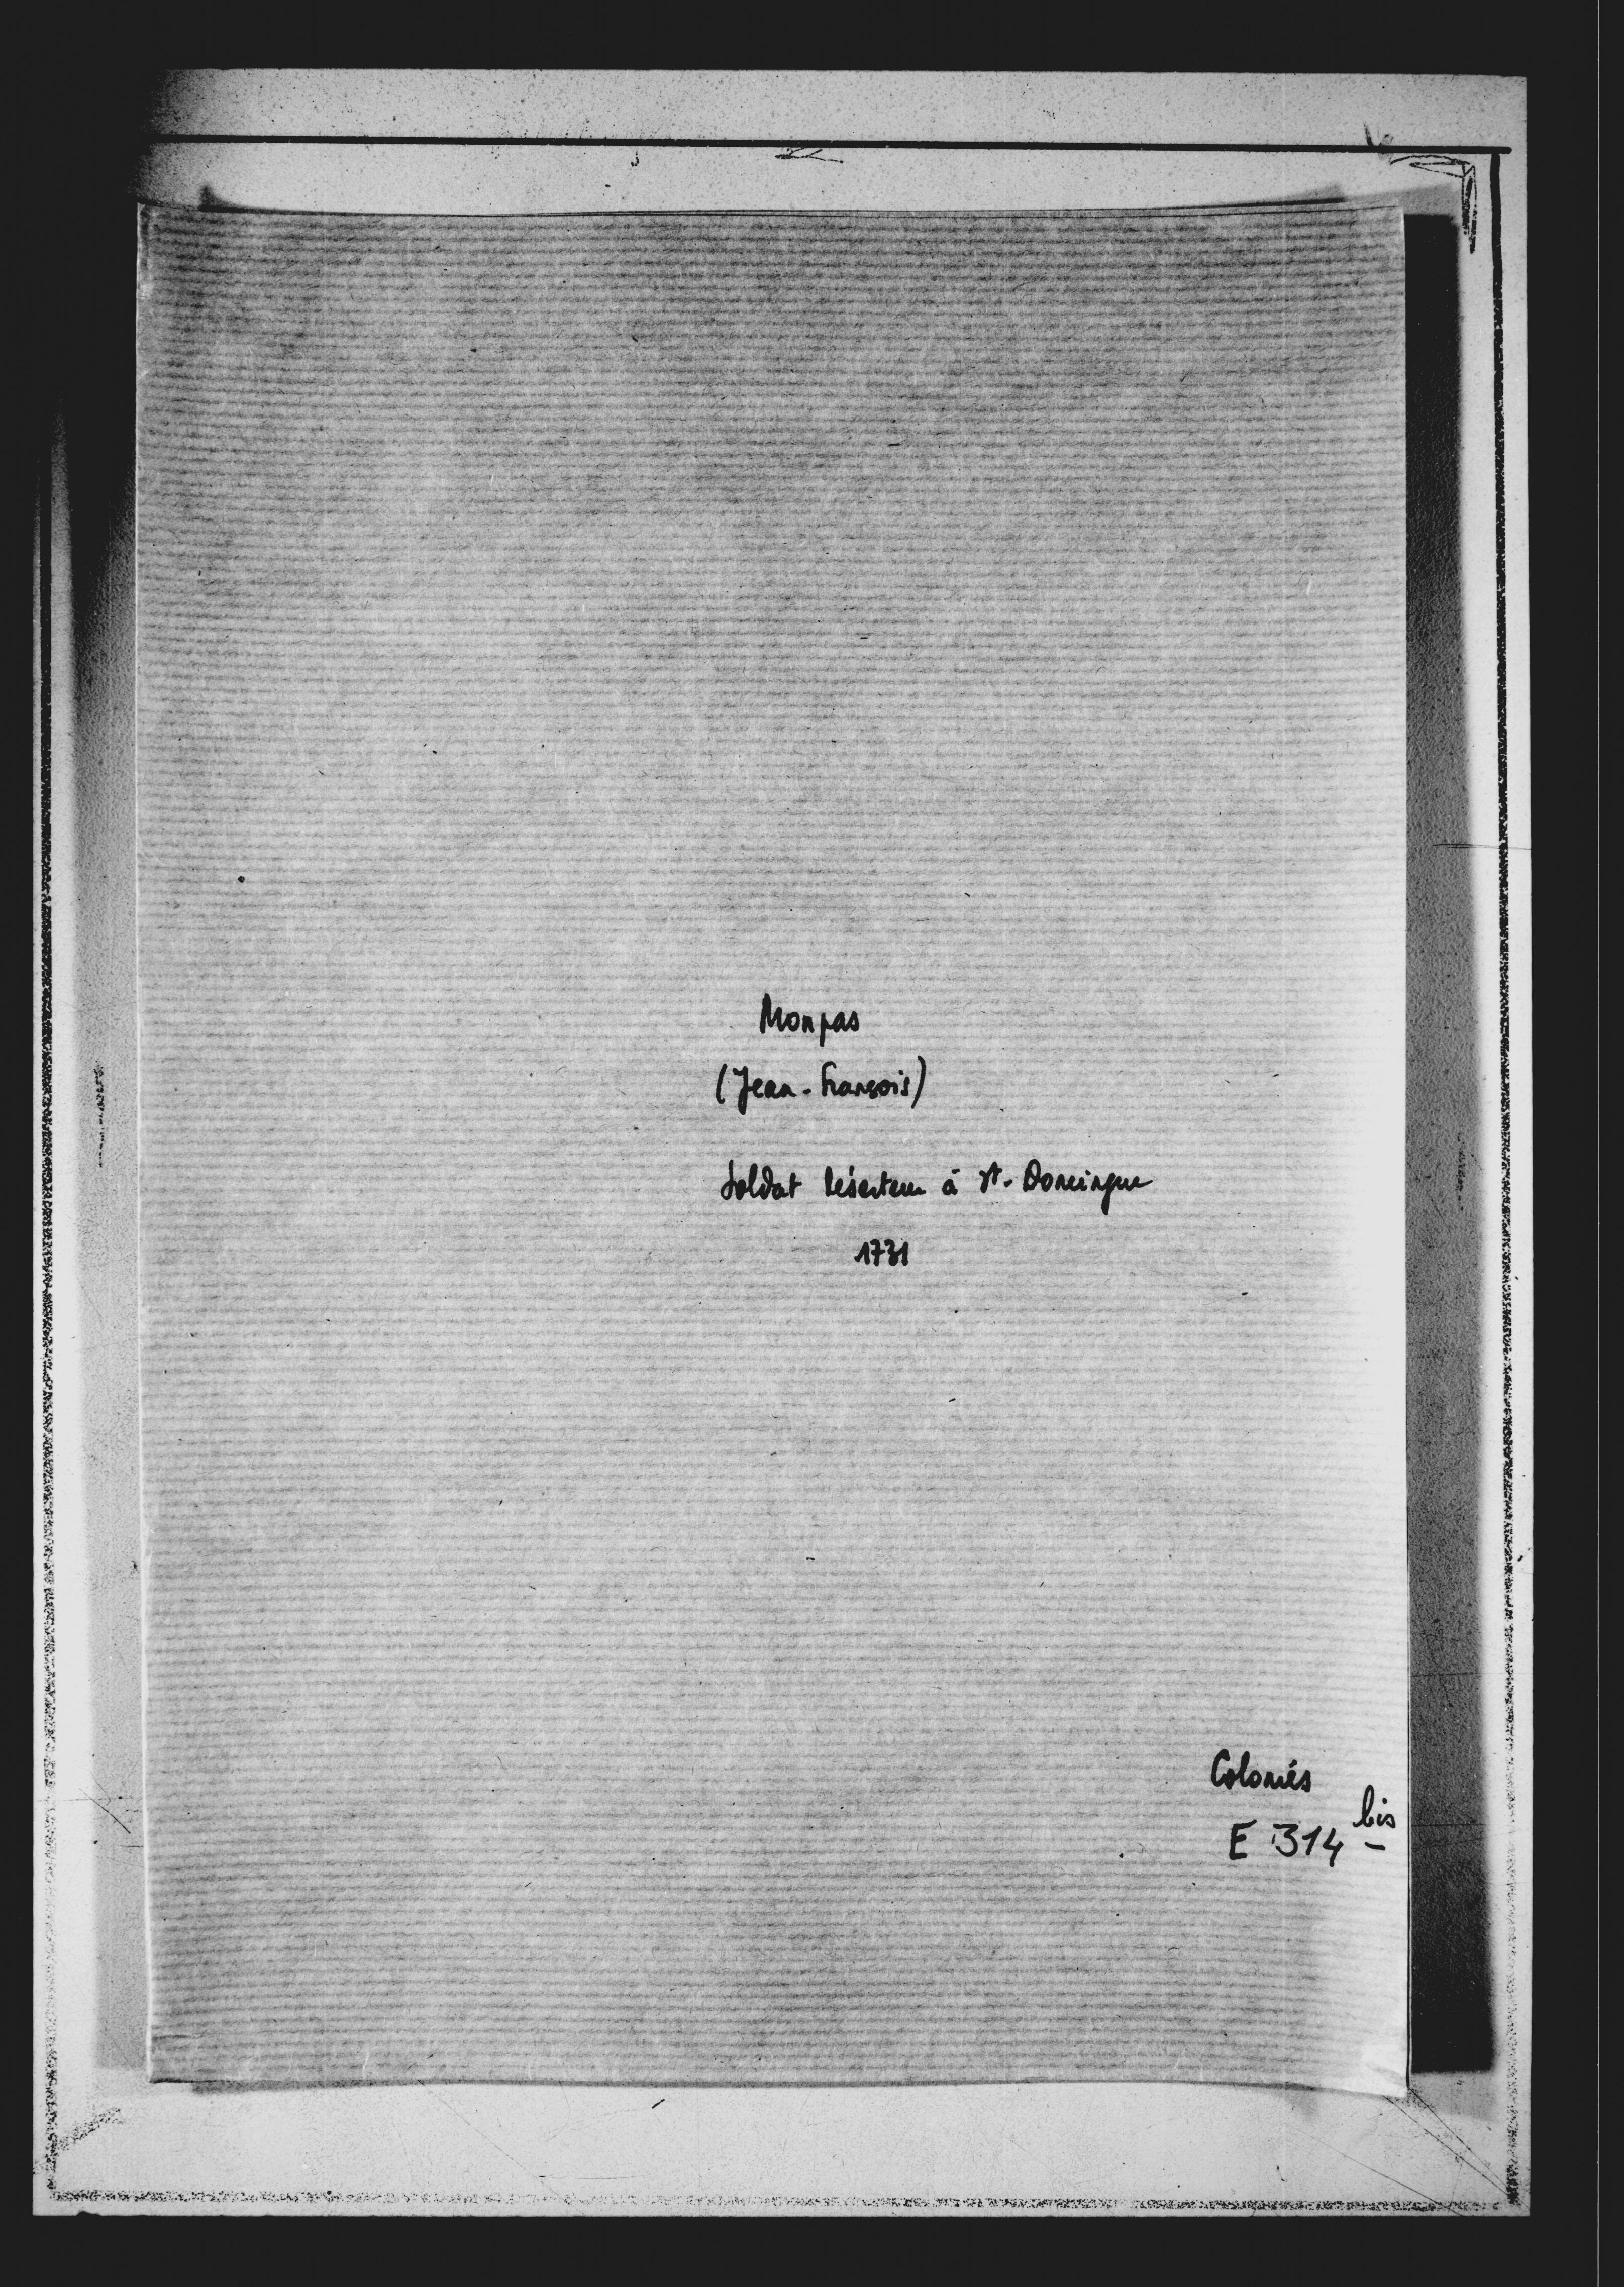 Monpas
(Jean-François)
Soldat déserteur à St-Domingue
1731
Colonies
E 314 bis